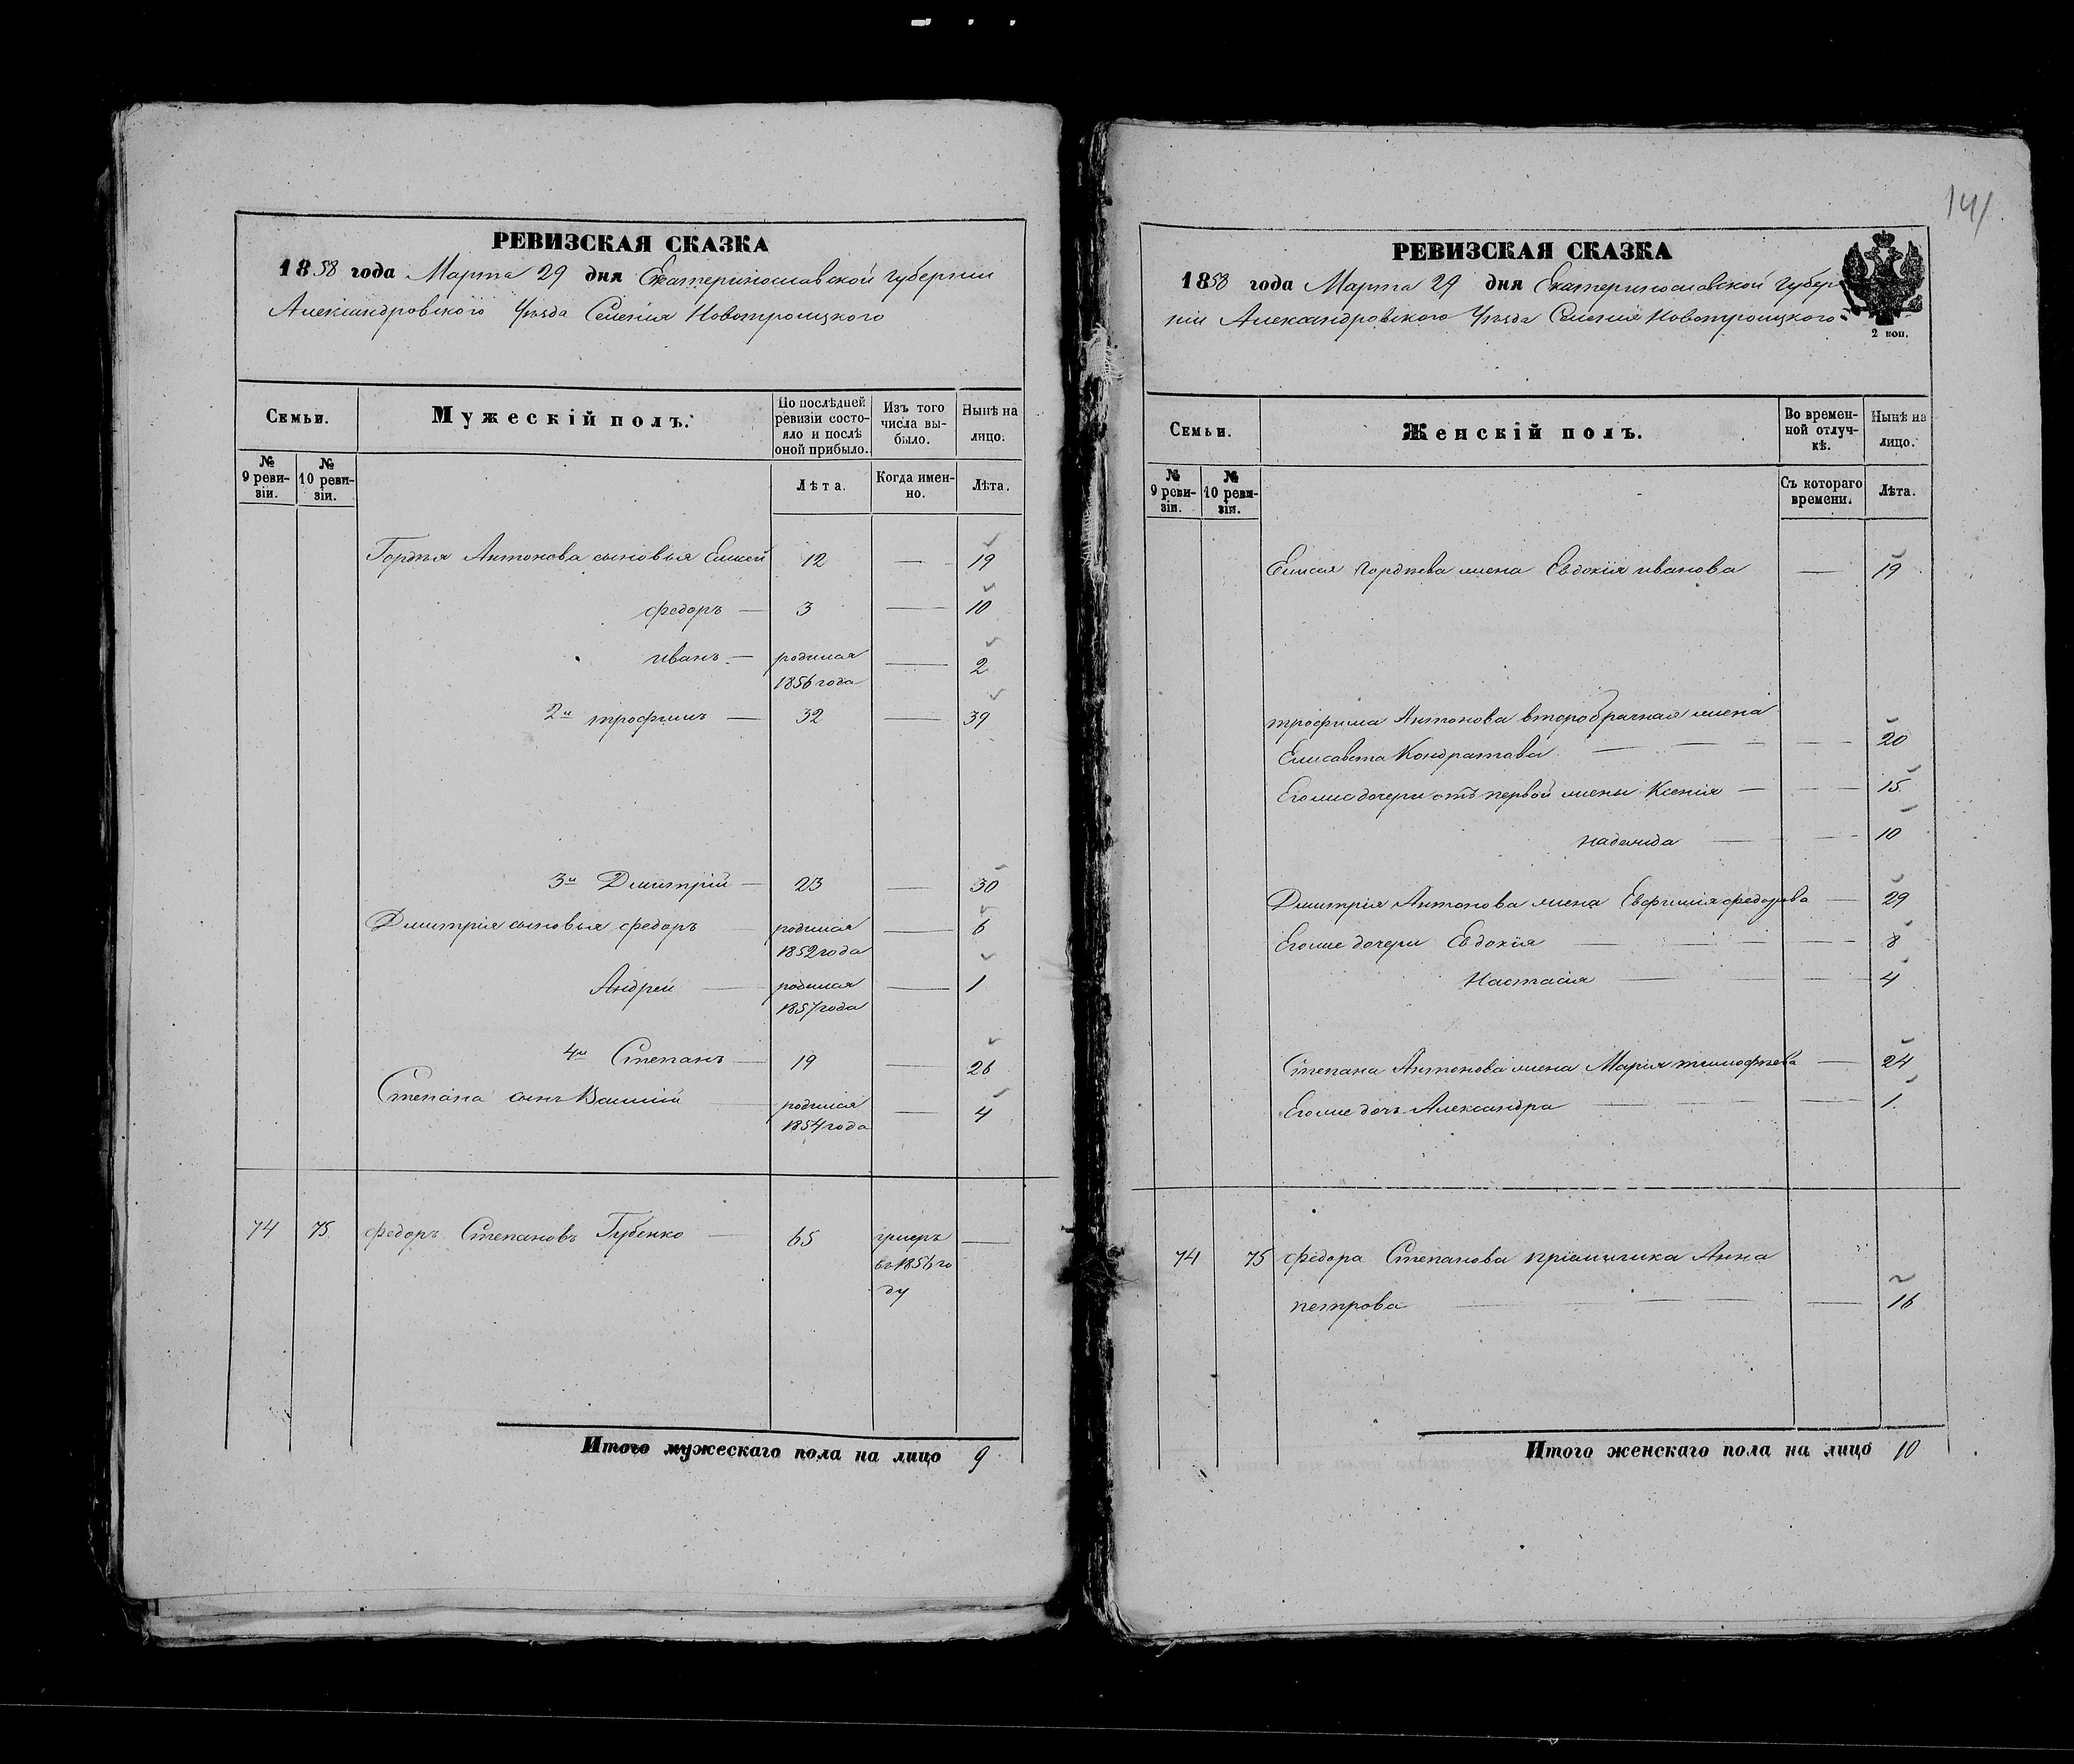 РЕВИЗСКАЯ СКАЗКА
1858 года Марта 29 дня Екатеринославской Губернии
Александровского Уѣзда Селенія Новотроицкого
Семьи.
Мужескій полъ.
По послѣдней ревизіи состояло и послѣ оной прибыло.
Изъ того числа выбыло.
Нынѣ на лицо.
№ 9 ревизіи.
№ 10 ревизіи.
Лѣта.
Когда именно.
Лѣта.
Гордѣя Антонова сыновья Елисей 12 — 19
федоръ — 3 — 10
иванъ — родился — 2
1856 года
2й трофимъ — 32 — 39
3й Дмитрій — 23 — 30
Дмитрія сыновья федоръ — родился — 6
1852 года
Андрей — родился — 1
1857 года
4й Степанъ — 19 — 26
Степана сынъ Василій — родился — 4
1854 года
74 75. федоръ Степановъ Губенко — 65 умеръ —
въ 1856 го
ду
Итого мужескаго пола на лицо 9
141
РЕВИЗСКАЯ СКАЗКА
1858 года Марта 29 дня Екатеринославской Губер
ніи Александровского Уѣзда Селенія Новотроицкого
2 коп.
Семьи.
Женскій полъ.
Во временной отлучкѣ.
Нынѣ на лицо.
№ 9 ревизіи.
№ 10 ревизіи.
Съ котораго времени.
Лѣта.
Елисея Гордѣева жена Евдокія иванова — 19
трофима Антонова второбрачная жена
Елисавета Кондратова — 20
Его же дочери отъ первой жены Ксенія — 15
надежда — 10
Дмитрія Антонова жена Евфимія федорова — 29
Его же дочери Евдокія — 8
Настасія — 4
Степана Антонова жена Марія тимофѣева — 24
Его же дочь Александра — 1.
74 75 федора Степанова пріймачка Анна
петрова — 16
Итого женскаго пола на лицо 10